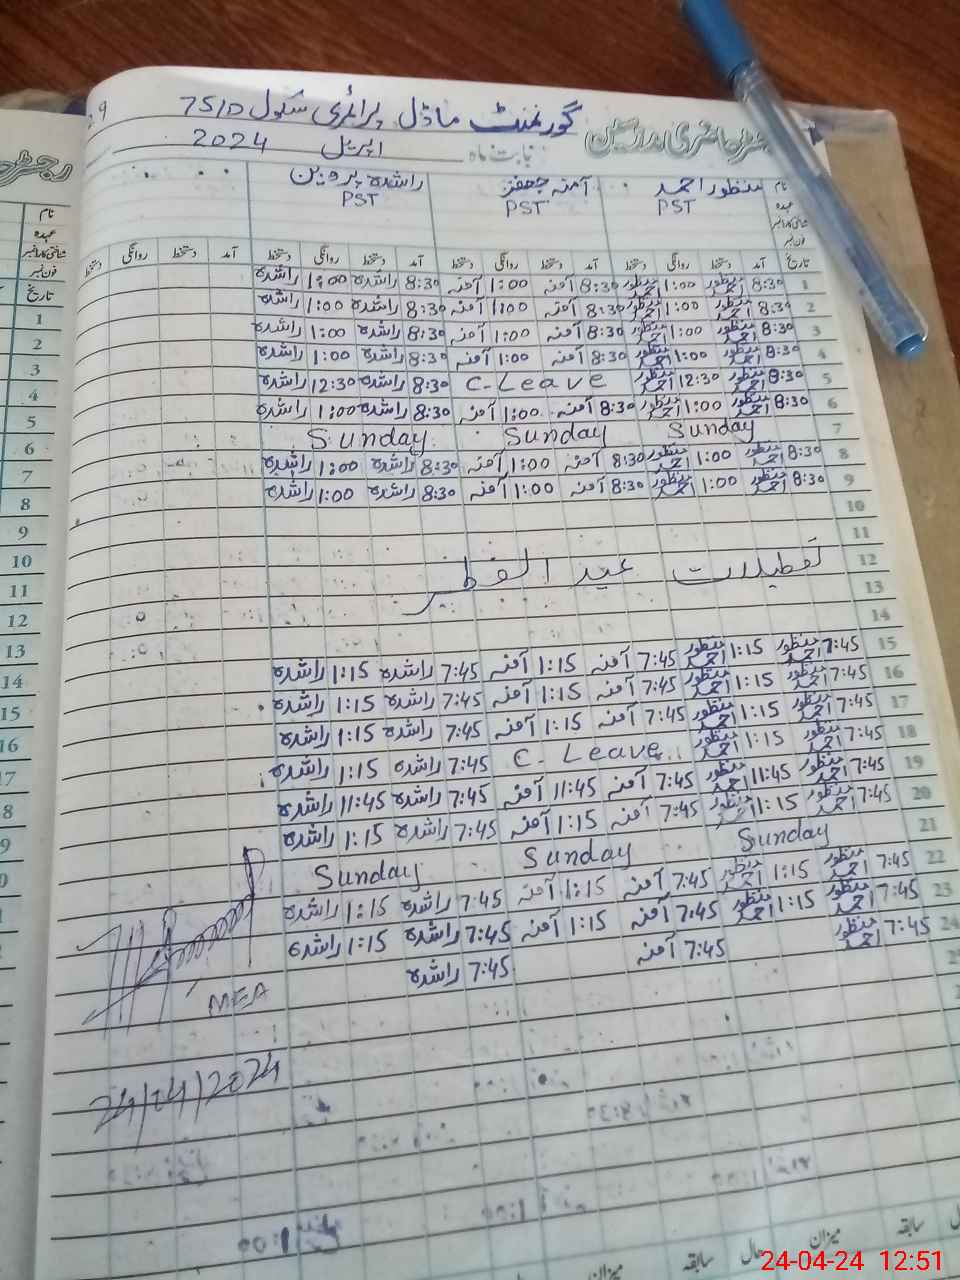 29
گورنمنٹ ماڈل پرائمری سکول 75/D
رجسٹر حاضری مدرسین
بابت ماہ اپریل 2024
نام منظور احمد آمنہ جعفر راشدہ پروین
عہدہ PST PST PST
شناختی کارڈ نمبر
فون نمبر
تاریخ آمد دستخط روانگی دستخط آمد دستخط روانگی دستخط آمد دستخط روانگی دستخط آمد دستخط روانگی دستخط
1 8:30 منظور احمد 1:00 منظور احمد 8:30 آمنہ 1:00 آمنہ 8:30 راشدہ 1:00 راشدہ
2 8:30 منظور احمد 1:00 منظور احمد 8:30 آمنہ 1:00 آمنہ 8:30 راشدہ 1:00 راشدہ
3 8:30 منظور احمد 1:00 منظور احمد 8:30 آمنہ 1:00 آمنہ 8:30 راشدہ 1:00 راشدہ
4 8:30 منظور احمد 1:00 منظور احمد 8:30 آمنہ 1:00 آمنہ 8:30 راشدہ 1:00 راشدہ
5 8:30 منظور احمد 12:30 منظور احمد C-Leave 8:30 راشدہ 12:30 راشدہ
6 8:30 منظور احمد 1:00 منظور احمد 8:30 آمنہ 1:00 آمنہ 8:30 راشدہ 1:00 راشدہ
7 Sunday Sunday Sunday
8 8:30 منظور احمد 1:00 منظور احمد 8:30 آمنہ 1:00 آمنہ 8:30 راشدہ 1:00 راشدہ
9 8:30 منظور احمد 1:00 منظور احمد 8:30 آمنہ 1:00 آمنہ 8:30 راشدہ 1:00 راشدہ
10
11
12 تعطیلات عید الفطر
13
14
15 7:45 منظور احمد 1:15 منظور احمد 7:45 آمنہ 1:15 آمنہ 7:45 راشدہ 1:15 راشدہ
16 7:45 منظور احمد 1:15 منظور احمد 7:45 آمنہ 1:15 آمنہ 7:45 راشدہ 1:15 راشدہ
17 7:45 منظور احمد 1:15 منظور احمد 7:45 آمنہ 1:15 آمنہ 7:45 راشدہ 1:15 راشدہ
18 7:45 منظور احمد 1:15 منظور احمد C. Leave 7:45 راشدہ 1:15 راشدہ
19 7:45 منظور احمد 11:45 منظور احمد 7:45 آمنہ 11:45 آمنہ 7:45 راشدہ 11:45 راشدہ
20 7:45 منظور احمد 1:15 منظور احمد 7:45 آمنہ 1:15 آمنہ 7:45 راشدہ 1:15 راشدہ
21 Sunday Sunday Sunday
22 7:45 منظور احمد 1:15 منظور احمد 7:45 آمنہ 1:15 آمنہ 7:45 راشدہ 1:15 راشدہ
23 7:45 منظور احمد 1:15 منظور احمد 7:45 آمنہ 1:15 آمنہ 7:45 راشدہ 1:15 راشدہ
24 7:45 منظور احمد 7:45 آمنہ 7:45 راشدہ
MEA
24/04/2024
سابقہ میزان حال سابقہ میزان
نام
عہدہ
شناختی کارڈ نمبر
فون نمبر
تاریخ
1
2
3
4
5
6
7
8
9
10
11
12
13
14
15
16
24-04-24 12:51